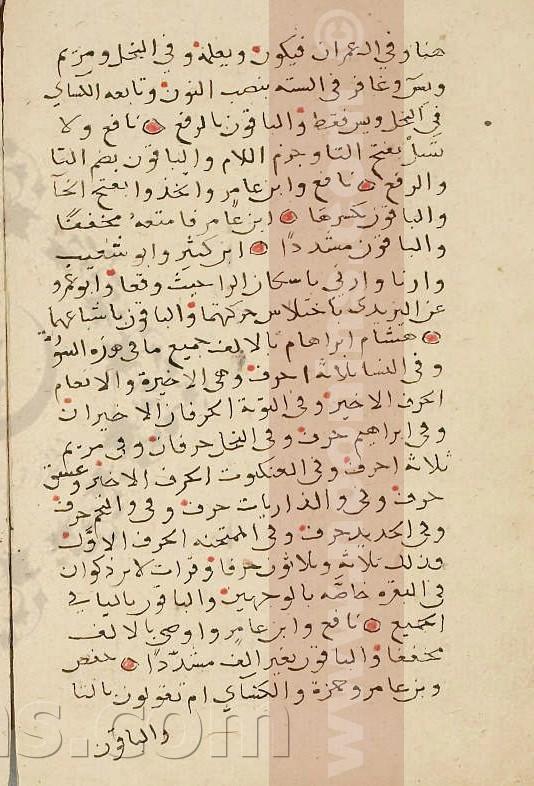 هنا وفي ال عمران فيكون ويعلمه وفي النحل ومريم
ويس وغافر في الستة بنصب النون وتابعه الكساي
في النحل ويس فقط والباقون بالرفع نافع ولا
تسل بفتح التا وجزم اللام والباقون بضم التا
والرفع نافع وابن عامر واتخذوا بفتح الخا
والباقون بكسرها ابن عامر فامتعه مخففا
والباقون مشددا ابن كثير وابو شعيب
وارنا وارني باسكان الرا حيث وقعا وابو عمرو
عن اليزيدي باختلاس حركتهما والباقون باشباعها
هشام ابراهام بالالف جميع ما في هذه السورة
وفي النسا ثلاثة احرف وهي الاخيرة والانعام
الحرف الاخير وفي التوبة الحرفان الاخيران
وفي ابراهيم حرف وفي النحل حرفان وفي مريم
ثلاثة احرف وفي العنكبوت الحرف الاخير وعسق
حرف وفي والذاريات حرف وفي والنجم حرف
وفي الحديد حرف وفي الممتحنه الحرف الاول
فذلك ثلاثة وثلاثون حرفا وقرات لابن ذكوان
في البقره خاصة بالوجهين والباقون باليا في
الجميع نافع وابن عامر واوصى بالالف
مخففا والباقون بغير الف مشددا حفص
وبن عامر وحمزة والكساي ام تقولون بالتا
والباقون